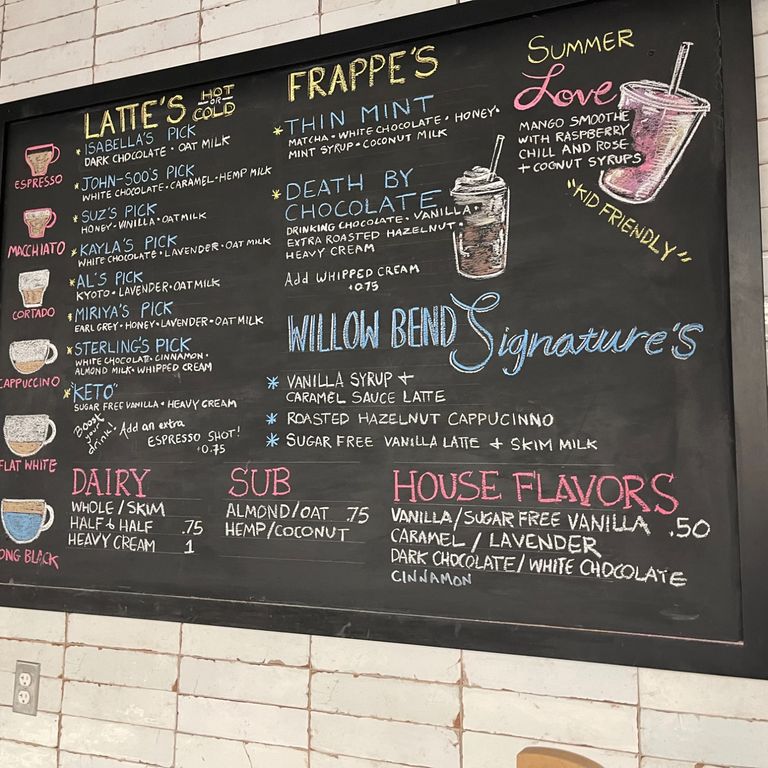 LATTE'S HOT OR COLD
* ISABELLA'S PICK
DARK CHOCOLATE · OAT MILK
* JOHN-SOO'S PICK
WHITE CHOCOLATE · CARAMEL · HEMP MILK
* SUZ'S PICK
HONEY · VANILLA · OATMILK
* KAYLA'S PICK
WHITE CHOCOLATE · LAVENDER · OAT MILK
* AL'S PICK
KYOTO · LAVENDER · OATMILK
* MIRIYA'S PICK
EARL GREY · HONEY · LAVENDER · OAT MILK
* STERLING'S PICK
WHITE CHOCOLATE · CINNAMON ·
ALMOND MILK · WHIPPED CREAM
* "KETO"
SUGAR FREE VANILLA · HEAVY CREAM
Boost
your
drink!
Add an extra
ESPRESSO SHOT!
+0.75
ESPRESSO
MACCHIATO
CORTADO
CAPPUCCINO
FLAT WHITE
ONG BLACK
FRAPPE'S
* THIN MINT
MATCHA · WHITE CHOCOLATE · HONEY ·
MINT SYRUP · COCONUT MILK
* DEATH BY
CHOCOLATE
DRINKING CHOCOLATE · VANILLA ·
EXTRA ROASTED HAZELNUT ·
HEAVY CREAM
Add WHIPPED CREAM
+0.75
SUMMER
Love
MANGO SMOOTHE
WITH RASPBERRY
CHILL AND ROSE
+ COCNUT SYRUPS
"KID FRIENDLY"
WILLOW BEND Signature's
* VANILLA SYRUP +
CARAMEL SAUCE LATTE
* ROASTED HAZELNUT CAPPUCINNO
* SUGAR FREE VANILLA LATTE + SKIM MILK
DAIRY
WHOLE / SKIM
HALF & HALF .75
HEAVY CREAM 1
SUB
ALMOND/OAT .75
HEMP/COCONUT
HOUSE FLAVORS
VANILLA / SUGAR FREE VANILLA .50
CARAMEL / LAVENDER
DARK CHOCOLATE / WHITE CHOCOLATE
CINNAMON